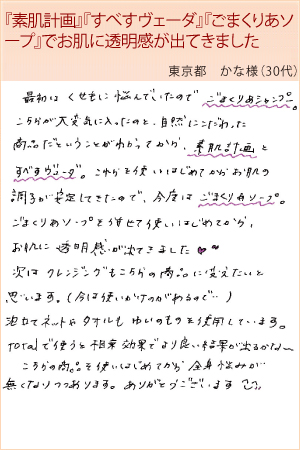 『素肌計画』『すべすヴェーダ』『ごまくりあソ
ープ』でお肌に透明感が出てきました
東京都　かな様（30代）
最初は くせ毛に悩んでいたので ごまくりあシャンプー。
こちらが大変気に入ったのと、自然にこだわった
商品だということがわかってから、素肌計画と
すべすヴェーダ。これらを使いはじめてからお肌の
調子が安定してきたので、今度は ごまくりあソープ。
ごまくりあソープを併せて使いはじめてから、
お肌に 透明感が出てきました♥~
次は クレンジングもこちらの商品に変えたいと
思います。(今は使いかけのがあるので…)
泡立てネットやタオルも ゆいのものを使用しています。
totalで使うと相乗効果でより良い結果が出るかな~
こちらの商品を使いはじめてから 全身悩みが
無くなりつつあります。ありがとうございます